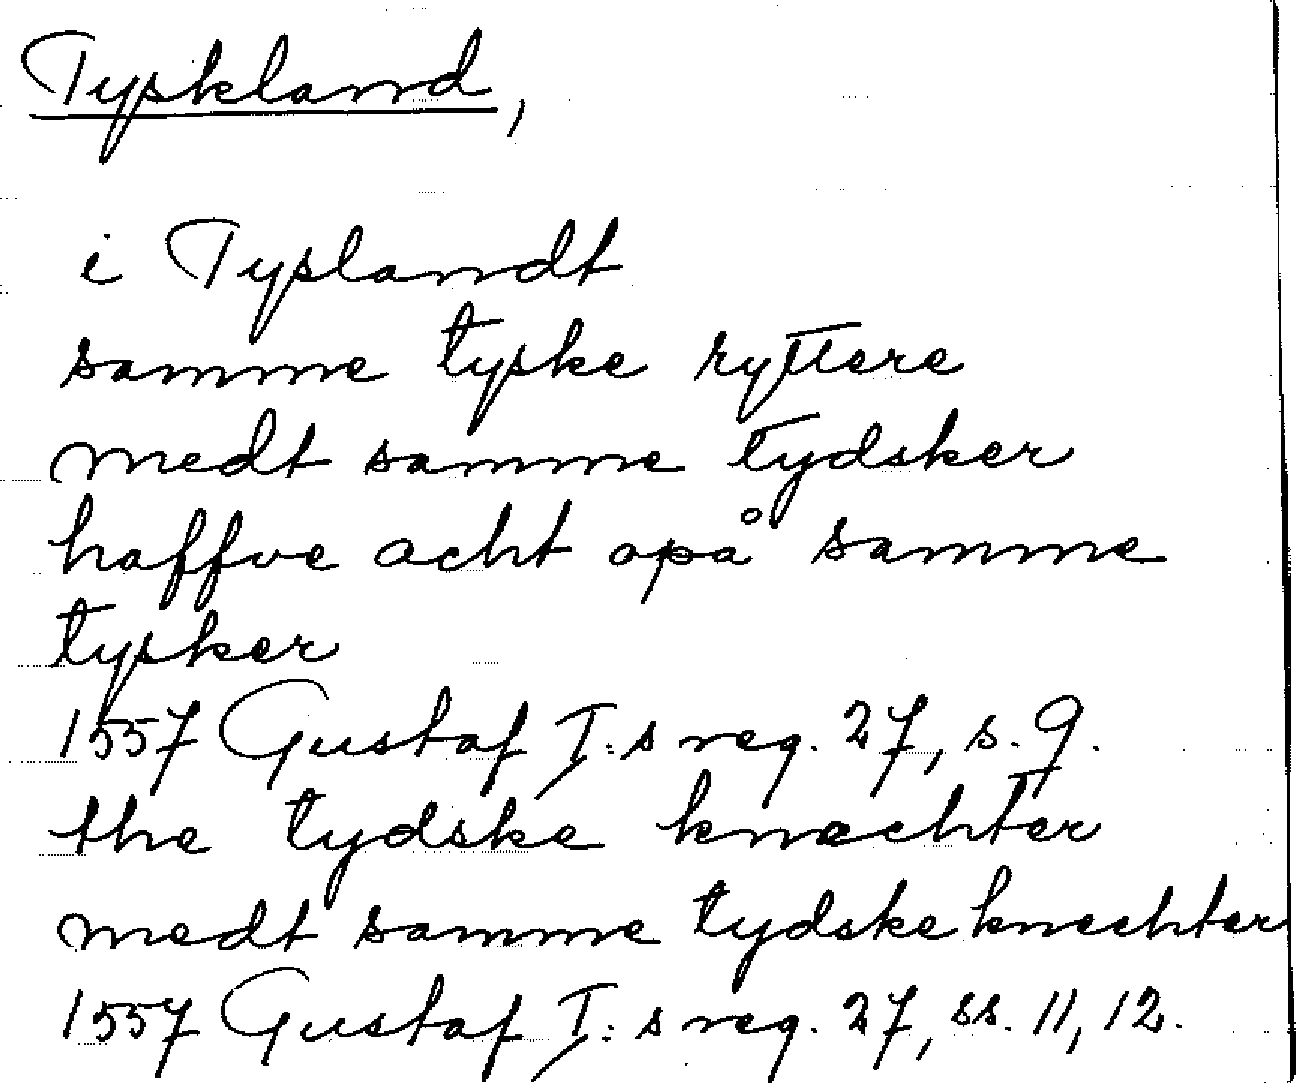 Tyskland,
i Tyslandt
samme tyske ryttere
medt samme tydsker
haffve acht opå samme
tysker
1557 Gustaf I:s reg. 27, s. 9.
the tydske knechter
medt samme tydske knechter
1557 Gustaf I:s reg. 27, ss. 11, 12.